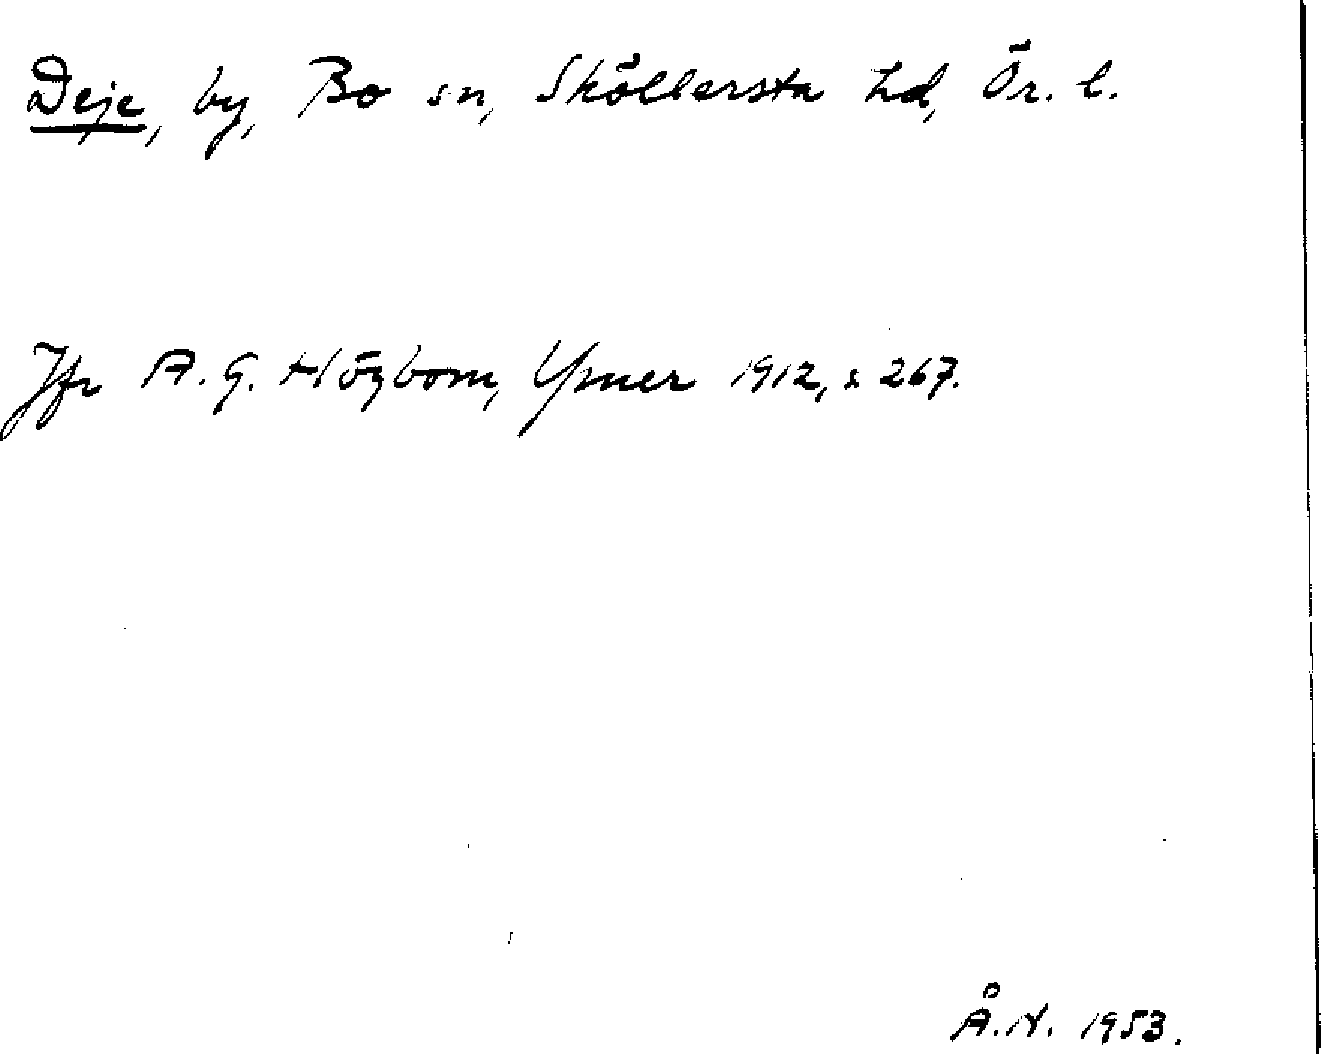 Deje, by, Bo sn, Sköllersta hd, Ör. l.
Jfr A. G. Högbom, Ymer 1912, s 267.
Å. N. 1953.